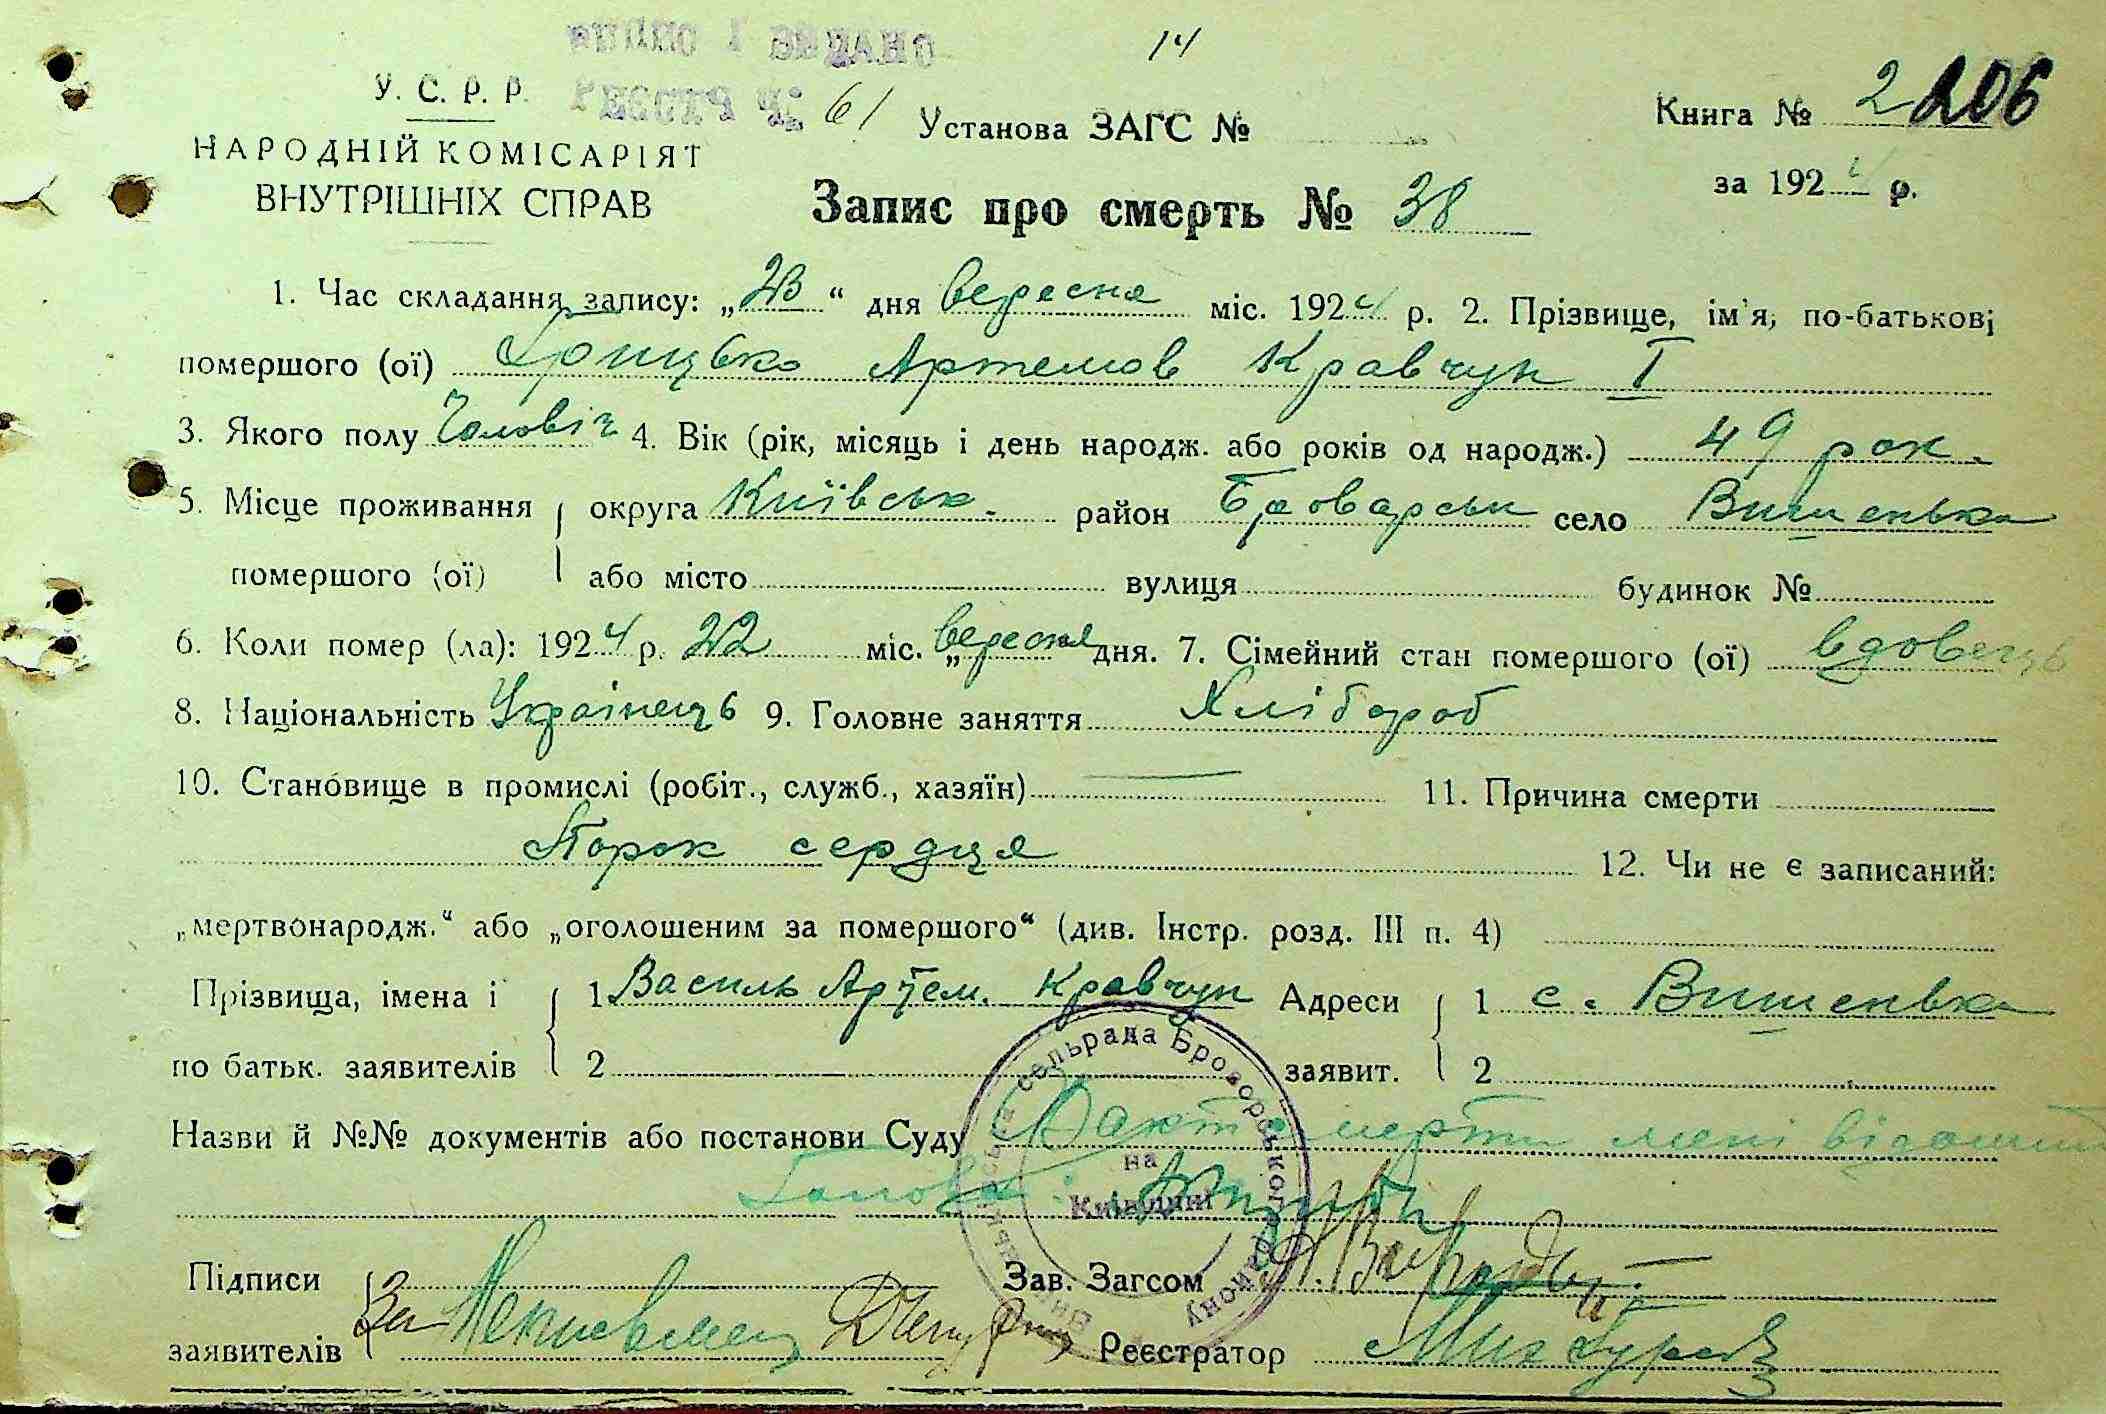 14
У. С. Р. Р. 61 Установа ЗАГС № Книга № 2 206
НАРОДНІЙ КОМІСАРІЯТ
ВНУТРІШНІХ СПРАВ
за 1924 р.
Запис про смерть № 38
1. Час складання запису: „23“ дня вересня міс. 1924 р. 2. Прізвище, ім'я, по-батькові
помершого (ої) Грицько Артемов Кравчун I
3. Якого полу Чоловіч 4. Вік (рік, місяць і день народж. або років од народж.) 49 рок.
5. Місце проживання округа Київськ. район Броварськ село Вишенька
помершого (ої) або місто вулиця будинок №
6. Коли помер (ла): 1924 р. 22 міс. „вересня дня. 7. Сімейний стан помершого (ої) вдовець
8. Національність Українець 9. Головне заняття Хлібороб
10. Становище в промислі (робіт., служб., хазяїн) — 11. Причина смерти
Порок сердця 12. Чи не є записаний:
„мертвонародж.“ або „оголошеним за помершого“ (див. Інстр. розд. III п. 4)
Прізвища, імена і 1 Василь Артем. Кравчун Адреси 1 с. Вишенька
по батьк. заявителів 2 заявит. 2
Назви й №№ документів або постанови Суду Факт смерти мені відомий
Голова:
сельрада Броворського району
на
Київщині
Підписи За Зав. Загсом
заявителів Реєстратор